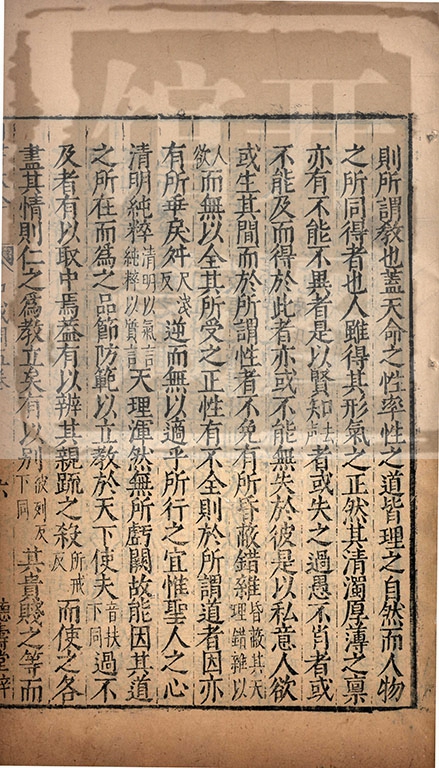 則所謂教也蓋天命之性率性之道皆理之自然而人物
之所同得者也人雖得其形氣之正然其清濁厚薄之稟
亦有不能不異者是以賢知去聲者或失之過愚不肖者或
不能及而得於此者亦或不能無失於彼是以私意人欲
或生其間而於所謂性者不免有所昏蔽錯雜昏蔽其天理錯雜以
人欲而無以全其所受之正性有不全則於所謂道者因亦
有所乖戾舛尺淺反逆而無以適乎所行之宜惟聖人之心
清明純粹清明以氣言純粹以質言天理渾然無所虧闕故能因其道
之所在而為之品節防範以立教於天下使夫音扶下同過不
及者有以取中焉蓋有以辨其親疏之殺所戒反而使之各
盡其情則仁之為教立矣有以別彼列反下同其貴賤之等而
德壽堂梓